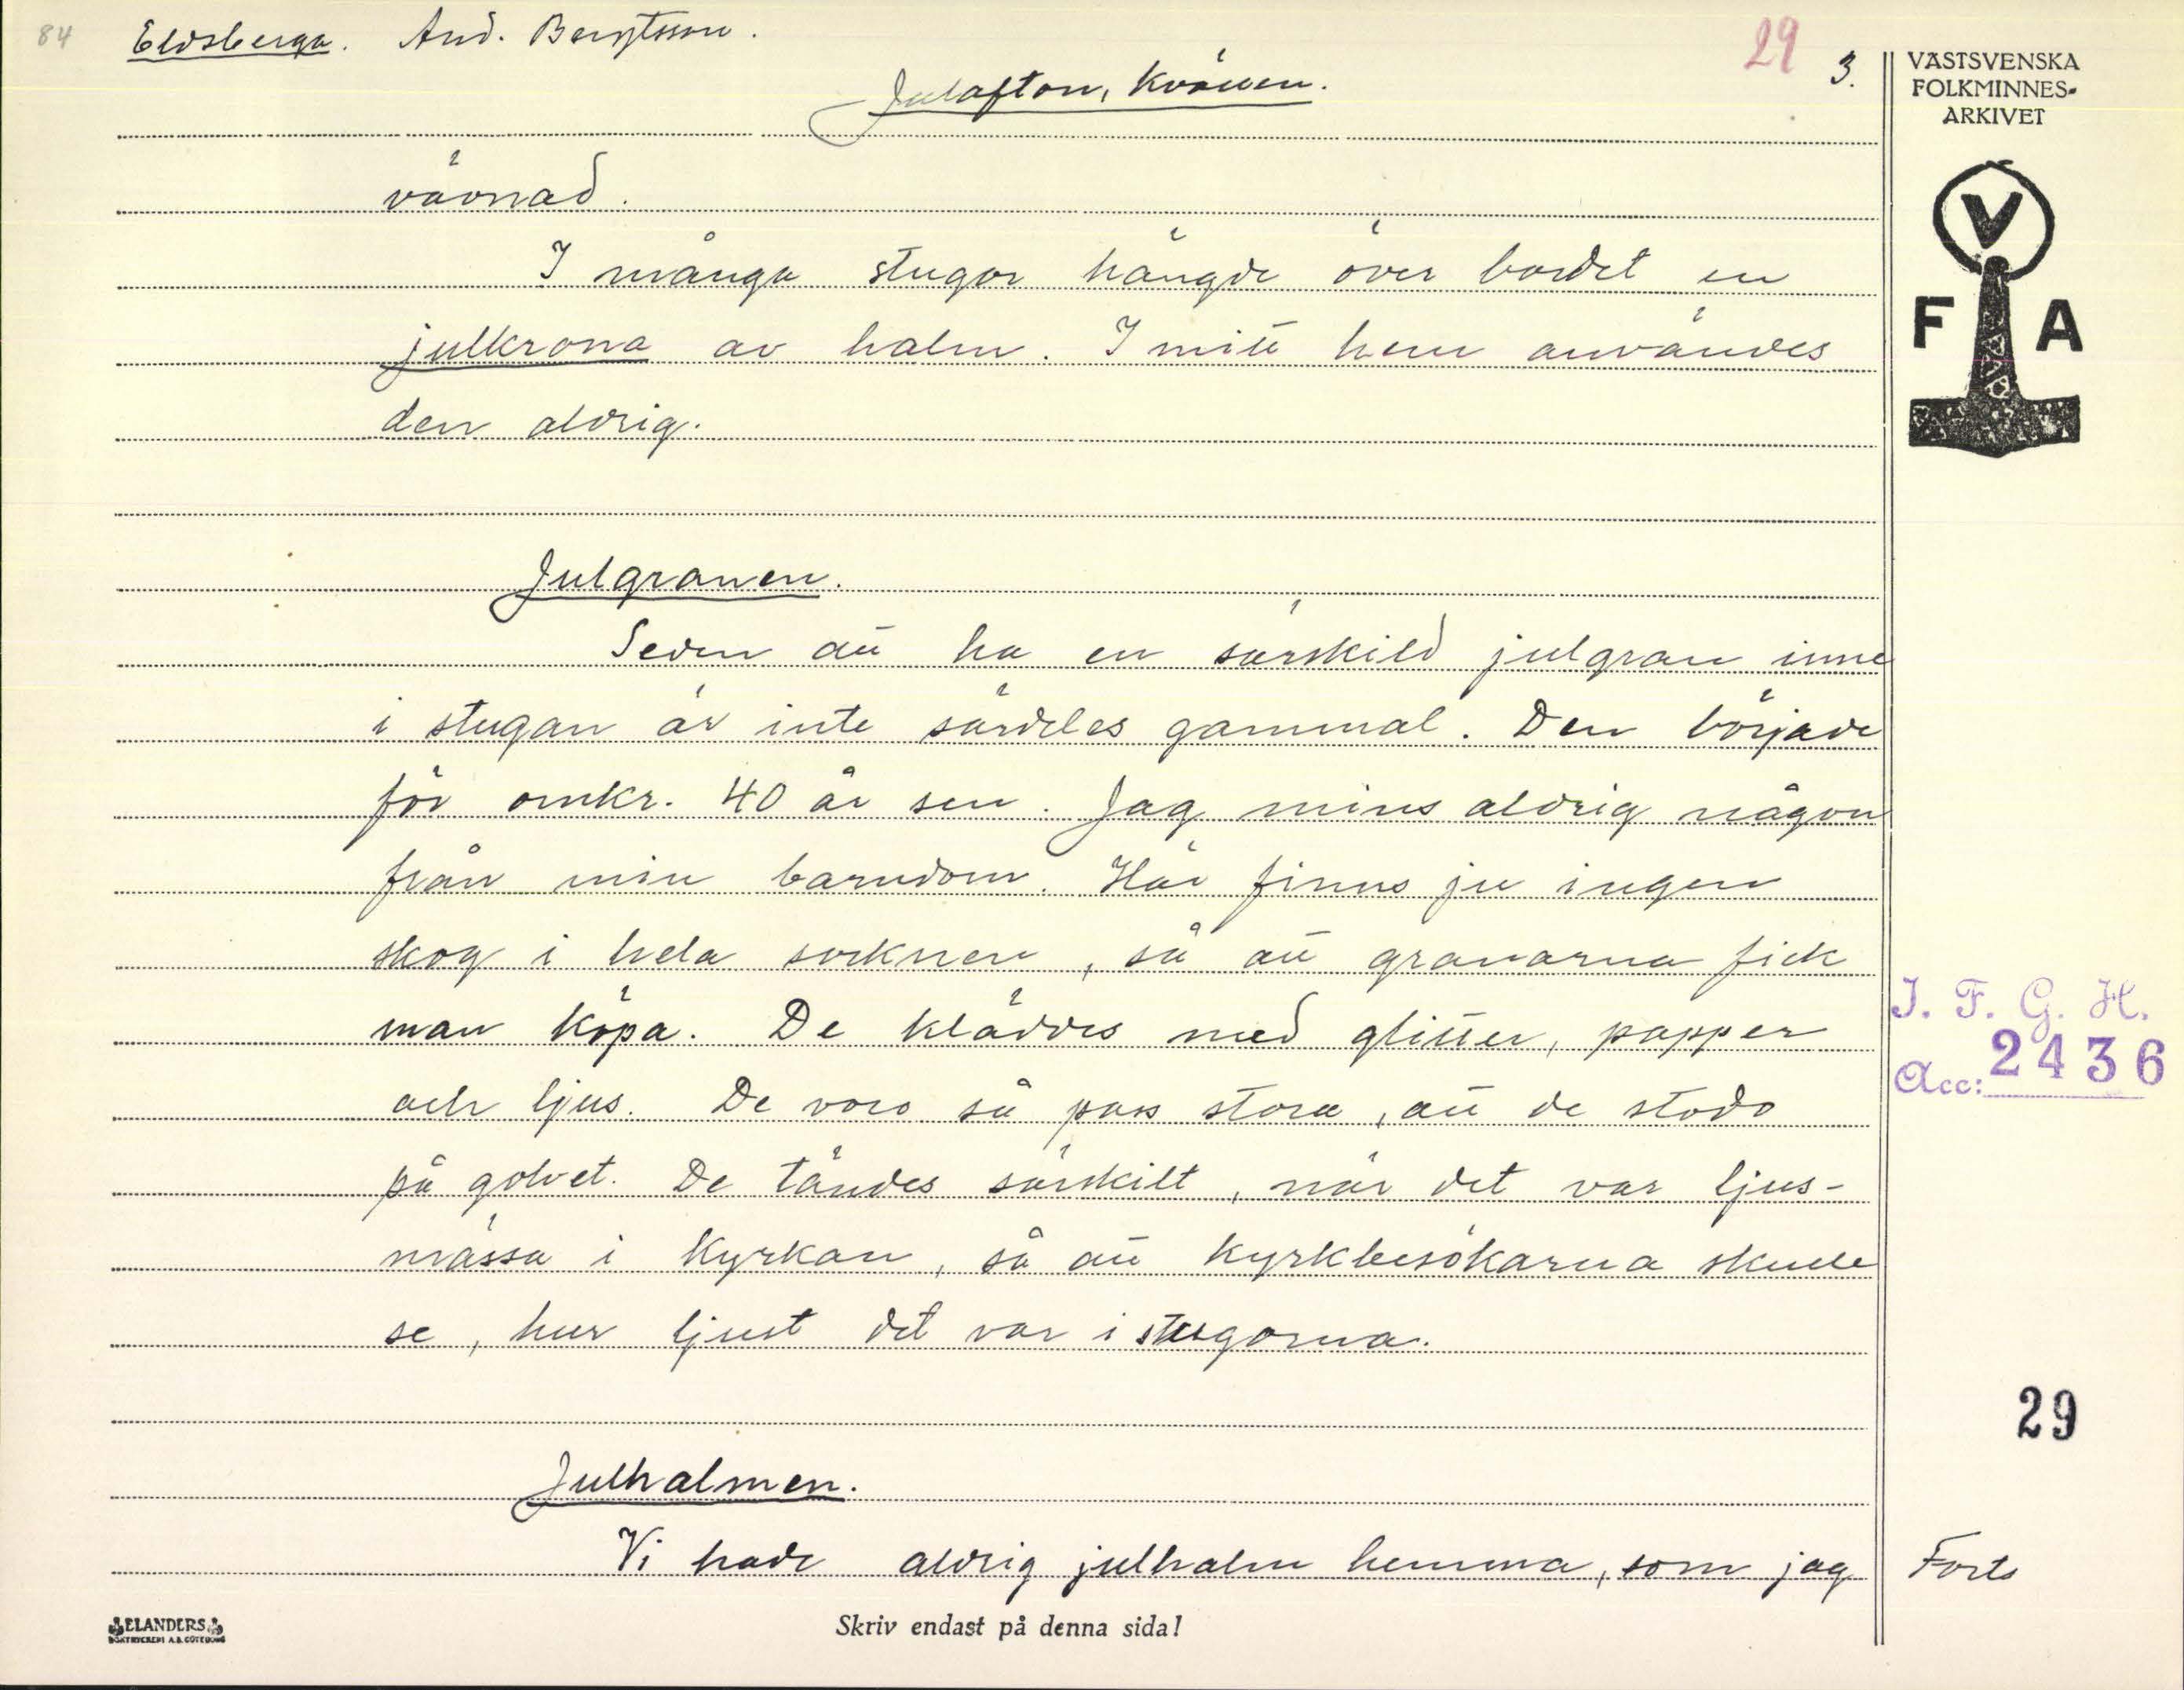 84 Eldsberga. And. Bengtsson. 29 3.
Julafton, Kvällen.
vävnad.
I många stugor hängde över bordet en
julkrona av halm. I mitt hem användes
den aldrig.
Julgranen.
Seden att ha en särskild julgran inne
i stugan är inte särdeles gammal. Den började
för omkr. 40 år sen. Jag mins aldrig någon
från min barndom. Här finns ju ingen
skog i hela socknen, så att granarna fick
man köpa. De kläddes med glitter, papper
och ljus. De voro så pass stora, att de stodo
på golvet. De tändes särskilt, när det var ljus-
mässa i kyrkan, så att kyrkbesökarna skulle
se, hur ljust det var i stugorna.
Julhalmen.
Vi hade aldrig julhalm hemma, som jag
Forts
VÄSTSVENSKA
FOLKMINNES-
ARKIVET
V
F A
I. F. G. H.
Acc: 2436
29
ELANDERS
BOKTRYCKERI A.B. GÖTEBORG
Skriv endast på denna sida!